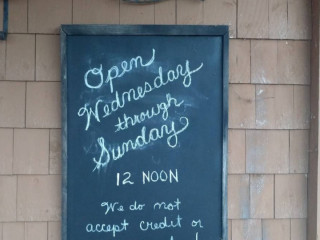 Open
Wednesday
through
Sunday
12 NOON
We do not
accept credit or